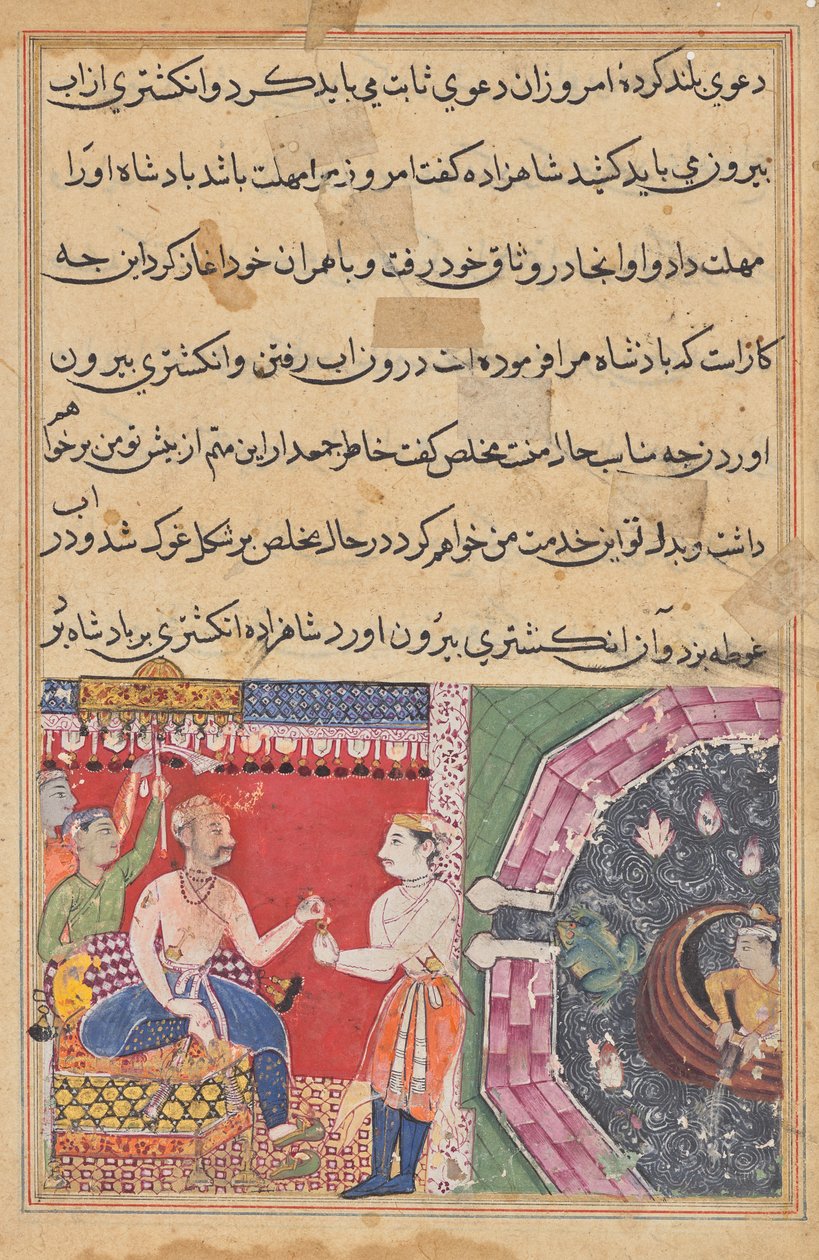 دعوي بلند کردۀ امروز ان دعوي ثابت مي بايد کرد و انکشتري از اب
بيرون مي بايد کشيد شاهزاده کفت امروز مرا مهلت باشد بادشاه اورا
مهلت داد و او انجا در وثاق خود رفت و با همران خود اغاز کرد اين جه
کار است که بادشاه مرا فرموده است درون اب رفتن و انکشتري بيرون
اوردن جه مناسب حال منست مخلص کفت خاطر جمعدار اين مهم از پيش تو من بر خواهم
داشت و بدل تو اين خدمت من خواهم کرد در حال مخلص بر شکل غوک شد و در اب
غوطه بزد و آن انکشتري بيرون اورد شاهزاده انکشتري بر بادشاه برد